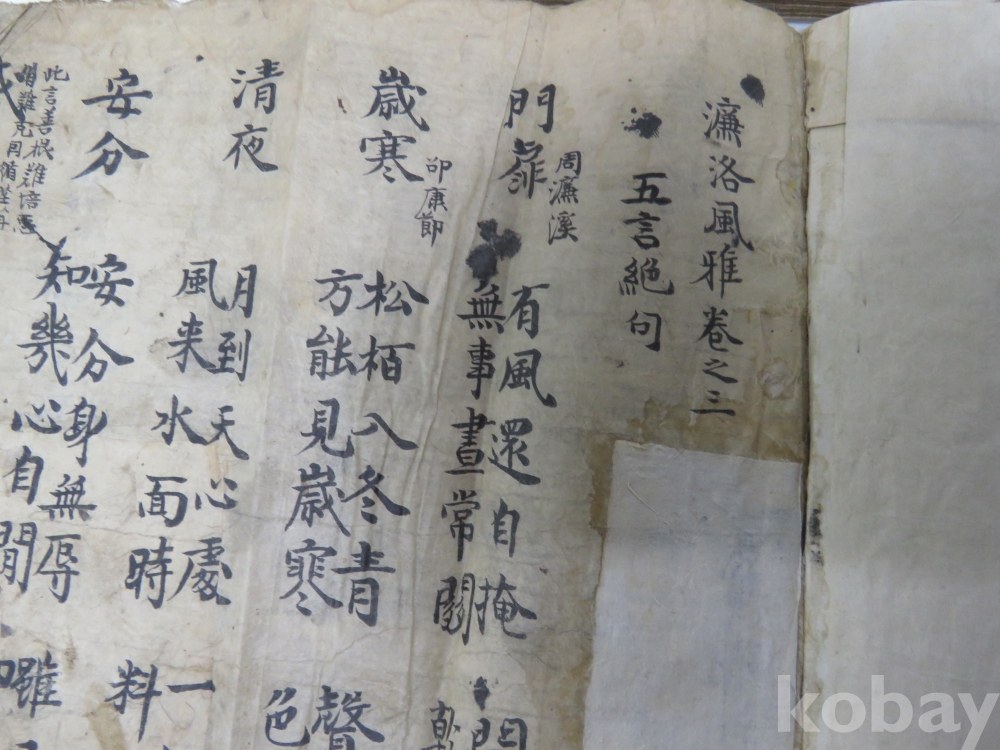 濂洛風雅卷之三
五言絶句
門扉
周濂溪
有風還自掩
無事晝常關
開
乾
歲寒
邵康節
松栢入冬青
方能見歲寒
聲
色
清夜
月到天心處
風来水面時
一
料
安分
安分身無辱
知幾心自閒
雖
此言善根難培惡
kobay